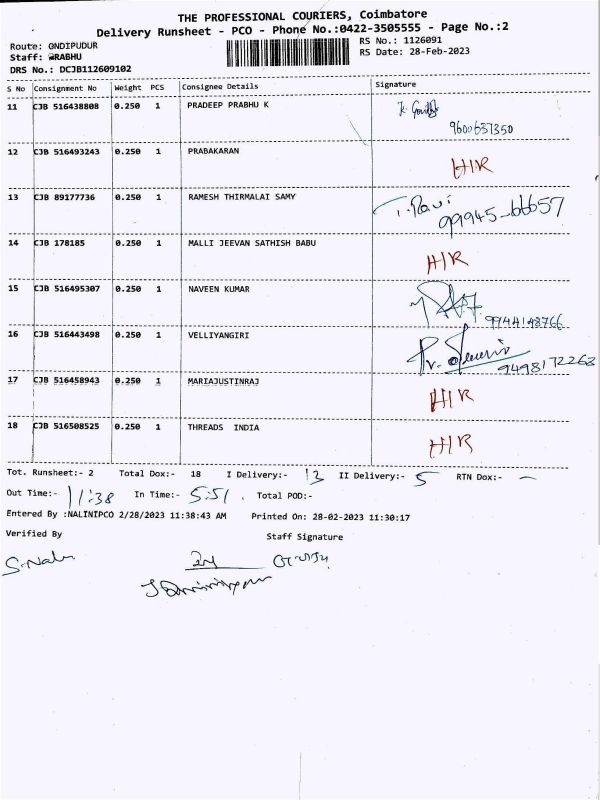 THE PROFESSIONAL COURIERS, Coimbatore
Delivery Runsheet - PCO - Phone No.:0422-3505555 - Page No.:2
Route: GNDIPUDUR
RS No.: 1126091
Staff: PRABHU
RS Date: 28-Feb-2023
DRS No.: DCJB112609102
S No Consignment No Weight PCS Consignee Details Signature
11 CJB 516438808 0.250 1 PRADEEP PRABHU K
9600637350
12 CJB 516493243 0.250 1 PRABAKARAN H/R
13 CJB 89177736 0.250 1 RAMESH THIRMALAI SAMY T. Ravi
99945-66657
14 CJB 178185 0.250 1 MALLI JEEVAN SATHISH BABU H/R
15 CJB 516495307 0.250 1 NAVEEN KUMAR
9944148766
16 CJB 516443498 0.250 1 VELLIYANGIRI
9498172268
17 CJB 516458943 0.250 1 MARIAJUSTINRAJ H/R
18 CJB 516508525 0.250 1 THREADS INDIA H/R
Tot. Runsheet:- 2 Total Dox:- 18 I Delivery:- 13 II Delivery:- 5 RTN Dox:- –
Out Time:- 11:38 In Time:- 5:51. Total POD:-
Entered By :NALINIPCO 2/28/2023 11:38:43 AM Printed On: 28-02-2023 11:30:17
Verified By Staff Signature
S. Nalini